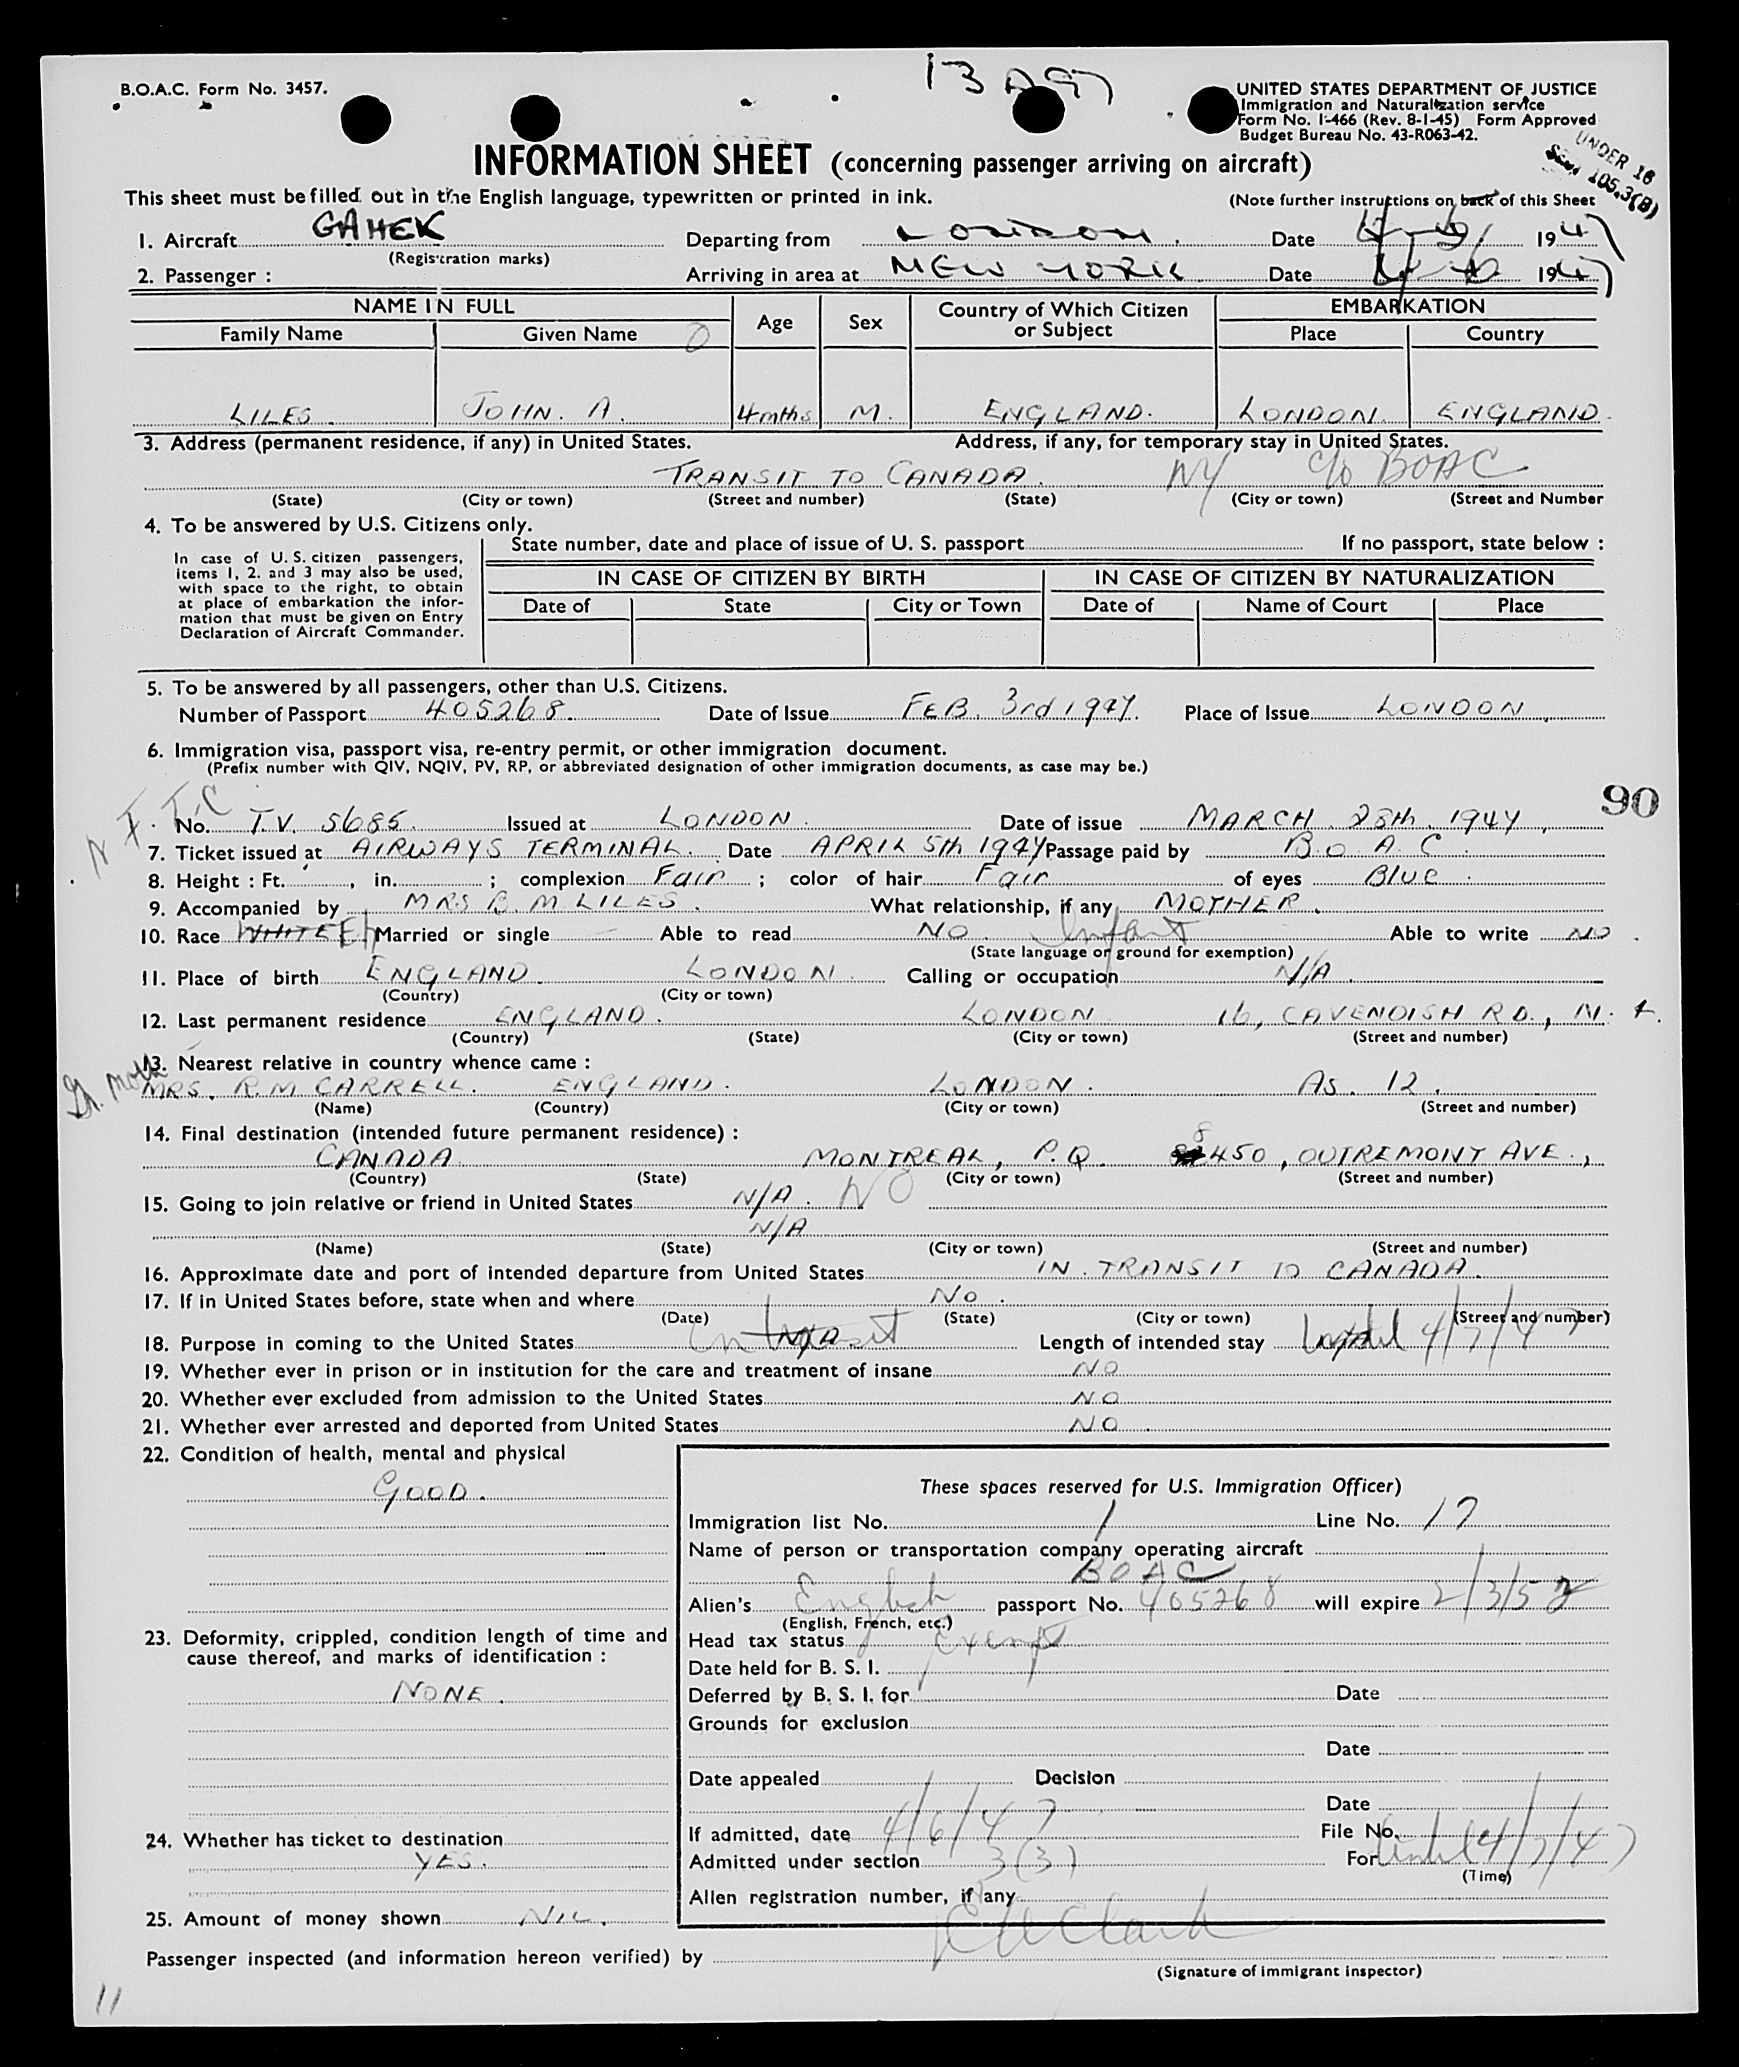 B.O.A.C. Form No. 3457.
UNITED STATES DEPARTMENT OF JUSTICE
Immigration and Naturalization service
Form No. I-466 (Rev. 8-1-45) Form Approved
Budget Bureau No. 43-R063-42.
UNDER 16
105.3(B)
INFORMATION SHEET (concerning passenger arriving on aircraft)
This sheet must be filled out in the English language, typewritten or printed in ink.
(Note further instructions on back of this Sheet
1. Aircraft GAHEK Departing from LONDON. Date 1947
(Registration marks)
2. Passenger : Arriving in area at NEW YORK Date 4-6 1947
NAME IN FULL Age Sex Country of Which Citizen or Subject EMBARKATION
Family Name Given Name Place Country
LILES. JOHN. A. 4mths M. ENGLAND. LONDON. ENGLAND.
3. Address (permanent residence, if any) in United States. Address, if any, for temporary stay in United States.
TRANSIT TO CANADA. NY c/o BOAC
(State) (City or town) (Street and number) (State) (City or town) (Street and Number
4. To be answered by U.S. Citizens only.
In case of U. S. citizen passengers, items 1, 2. and 3 may also be used, with space to the right, to obtain at place of embarkation the information that must be given on Entry Declaration of Aircraft Commander.
State number, date and place of issue of U. S. passport If no passport, state below :
IN CASE OF CITIZEN BY BIRTH IN CASE OF CITIZEN BY NATURALIZATION
Date of State City or Town Date of Name of Court Place
5. To be answered by all passengers, other than U.S. Citizens.
Number of Passport 405268. Date of Issue FEB. 3rd 1947. Place of Issue LONDON.
6. Immigration visa, passport visa, re-entry permit, or other immigration document.
(Prefix number with QIV, NQIV, PV, RP, or abbreviated designation of other immigration documents, as case may be.)
90
No. T.V. 5685. Issued at LONDON. Date of issue MARCH. 28th. 1947.
7. Ticket issued at AIRWAYS TERMINAL. Date APRIL 5th 1947 Passage paid by B.O.A.C.
8. Height : Ft. , in. ; complexion Fair ; color of hair Fair of eyes Blue.
9. Accompanied by MRS B. M LILES. What relationship, if any MOTHER.
10. Race WHITE Married or single Able to read NO. Infant Able to write NO.
(State language or ground for exemption)
11. Place of birth ENGLAND. LONDON. Calling or occupation N/A.
(Country) (City or town)
12. Last permanent residence ENGLAND. LONDON 16, CAVENDISH RD., N. 4.
(Country) (State) (City or town) (Street and number)
13. Nearest relative in country whence came :
Gr. moth
MRS. R.M CARRELL. ENGLAND. LONDON. AS. 12.
(Name) (Country) (City or town) (Street and number)
14. Final destination (intended future permanent residence) :
CANADA MONTREAL, P.Q. 8450, OUTREMONT AVE.,
(Country) (State) (City or town) (Street and number)
15. Going to join relative or friend in United States N/A. NO
N/A
(Name) (State) (City or town) (Street and number)
16. Approximate date and port of intended departure from United States IN TRANSIT TO CANADA.
17. If in United States before, state when and where No.
(Date) (State) (City or town) (Street and number)
18. Purpose in coming to the United States in transit Length of intended stay until 4/7/47
19. Whether ever in prison or in institution for the care and treatment of insane NO
20. Whether ever excluded from admission to the United States NO
21. Whether ever arrested and deported from United States NO
22. Condition of health, mental and physical
GOOD.
23. Deformity, crippled, condition length of time and cause thereof, and marks of identification :
NONE.
24. Whether has ticket to destination
YES.
25. Amount of money shown NIL.
These spaces reserved for U.S. Immigration Officer)
Immigration list No. 1 Line No. 17
Name of person or transportation company operating aircraft
BOAC
Alien's English passport No. 405268 will expire 2/3/52
(English, French, etc.)
Head tax status Exempt
Date held for B. S. I.
Deferred by B. S. I. for Date
Grounds for exclusion
Date
Date appealed Decision
Date
If admitted, date 4/6/47 File No.
Admitted under section 3(3) For Until 4/7/47
(Time)
Alien registration number, if any
Passenger inspected (and information hereon verified) by
(Signature of immigrant inspector)
11